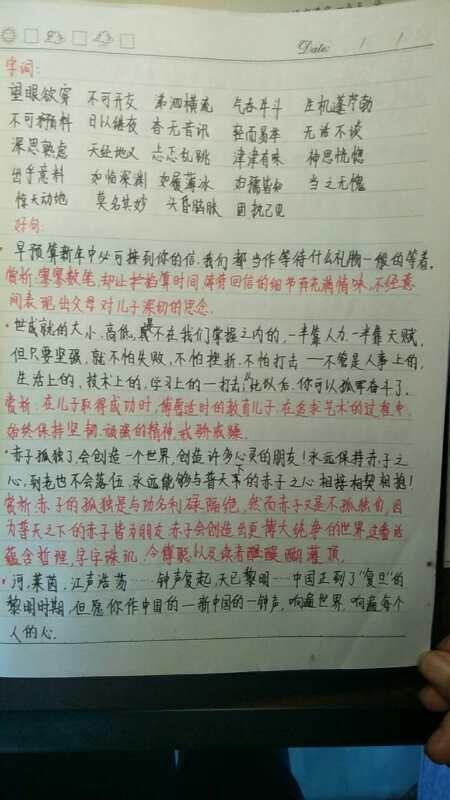 Date: / /
字词:
望眼欲穿 不可开交 涕泗横流 气吞牛斗 生机蓬勃
不可预料 日以继夜 杳无音讯 轻而易举 无话不谈
深思熟虑 天经地义 忐忑乱跳 津津有味 神思恍惚
出乎意料 如临深渊 如履薄冰 如孺皆知 当之无愧
惊天动地 莫名其妙 头昏脑胀 固执己见
好句:
·早预算新年中必可接到你的信,我们都当作等待什么礼物一般的等着。
赏析:寥寥数笔,却让掐指算时间等着回信的细节再充满情味,不经意
间表现出父母对儿子深切的思念。
·世成就的大小、高低,是不在我们掌握之内的,一半靠人力,一半靠天赋,
但只要坚强,就不怕失败,不怕挫折,不怕打击——不管是人事上的,
生活上的,技术上的,学习上的——打击;从此以后,你可以孤军奋斗了。
赏析:在儿子取得成功时,傅雷适时的教育儿子:在追求艺术的过程中,
始终保持坚韧、顽强的精神,戒骄戒躁。
·赤子孤独了,会创造一个世界,创造许多心灵的朋友!永远保持赤子之
心,到老也不会落伍,永远能够与普天下的赤子之心相接相契相抱!
赏析:赤子的孤独是与功名利碌隔绝,然而赤子又是不孤独的,因
为普天之下的赤子皆为朋友,赤子会创造出更博大纯净的世界,这番话
蕴含哲理,字字珠玑,令傅聪以及读者醍醐灌顶。
·河,莱茵,江声浩荡……钟声复起,天已黎明……中国正到了“复旦”的
黎明时期,但愿你作中国的—新中国的—钟声,响遍世界,响遍每个
人的心.